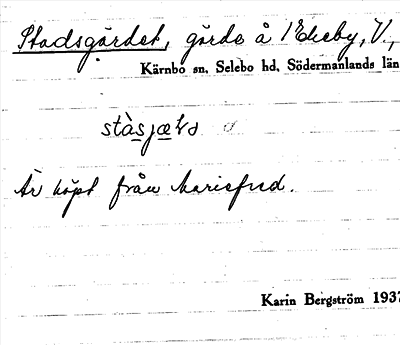 Stadsgärdet, gärde å 1 Edeby, V.,
Kärnbo sn, Selebo hd, Södermanlands län
stàsjæṭə
Är köpt från Mariefred.
Karin Bergström 1937